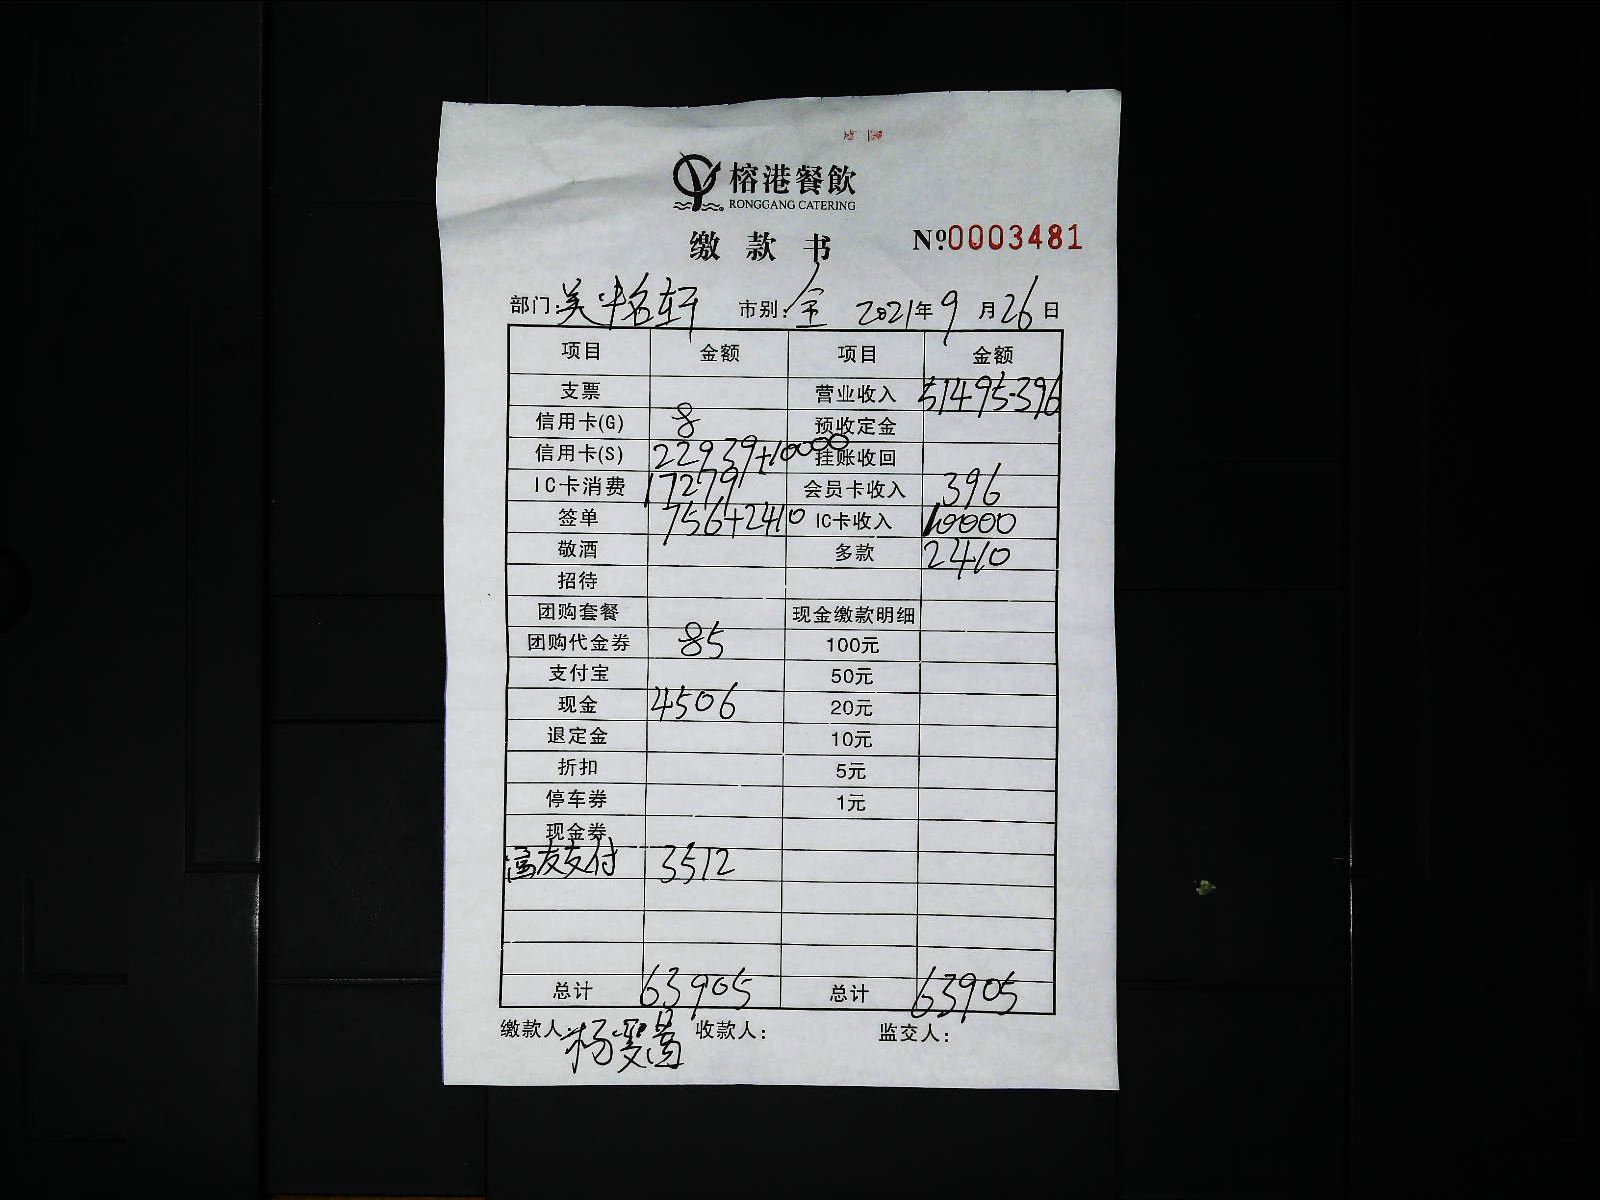 榕港餐飲
RONGGANG CATERING
缴款书 Nº:0003481
部门: 美 名轩 市别: 全 2021年9月26日
项目 金额 项目 金额
支票 营业收入 51495-396
信用卡(G) 8 预收定金
信用卡(S) 22939+10000 挂账收回
IC卡消费 17279 会员卡收入 396
签单 756+2410 IC卡收入 10000
敬酒 多款 2410
招待
团购套餐 现金缴款明细
团购代金券 85 100元
支付宝 50元
现金 4506 20元
退定金 10元
折扣 5元
停车券 1元
现金券
富友支付 3512
总计 63905 总计 63905
缴款人: 杨 收款人: 监交人: